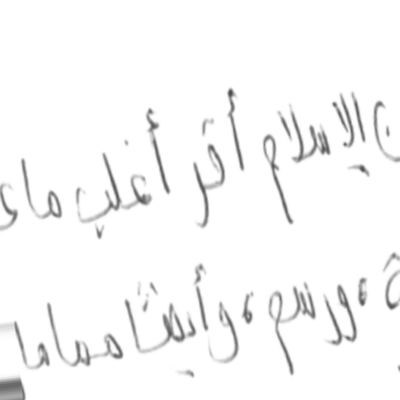 ن الإسلام أقر أغلب ما ع
ة، ورسم، وأيضا مما ما